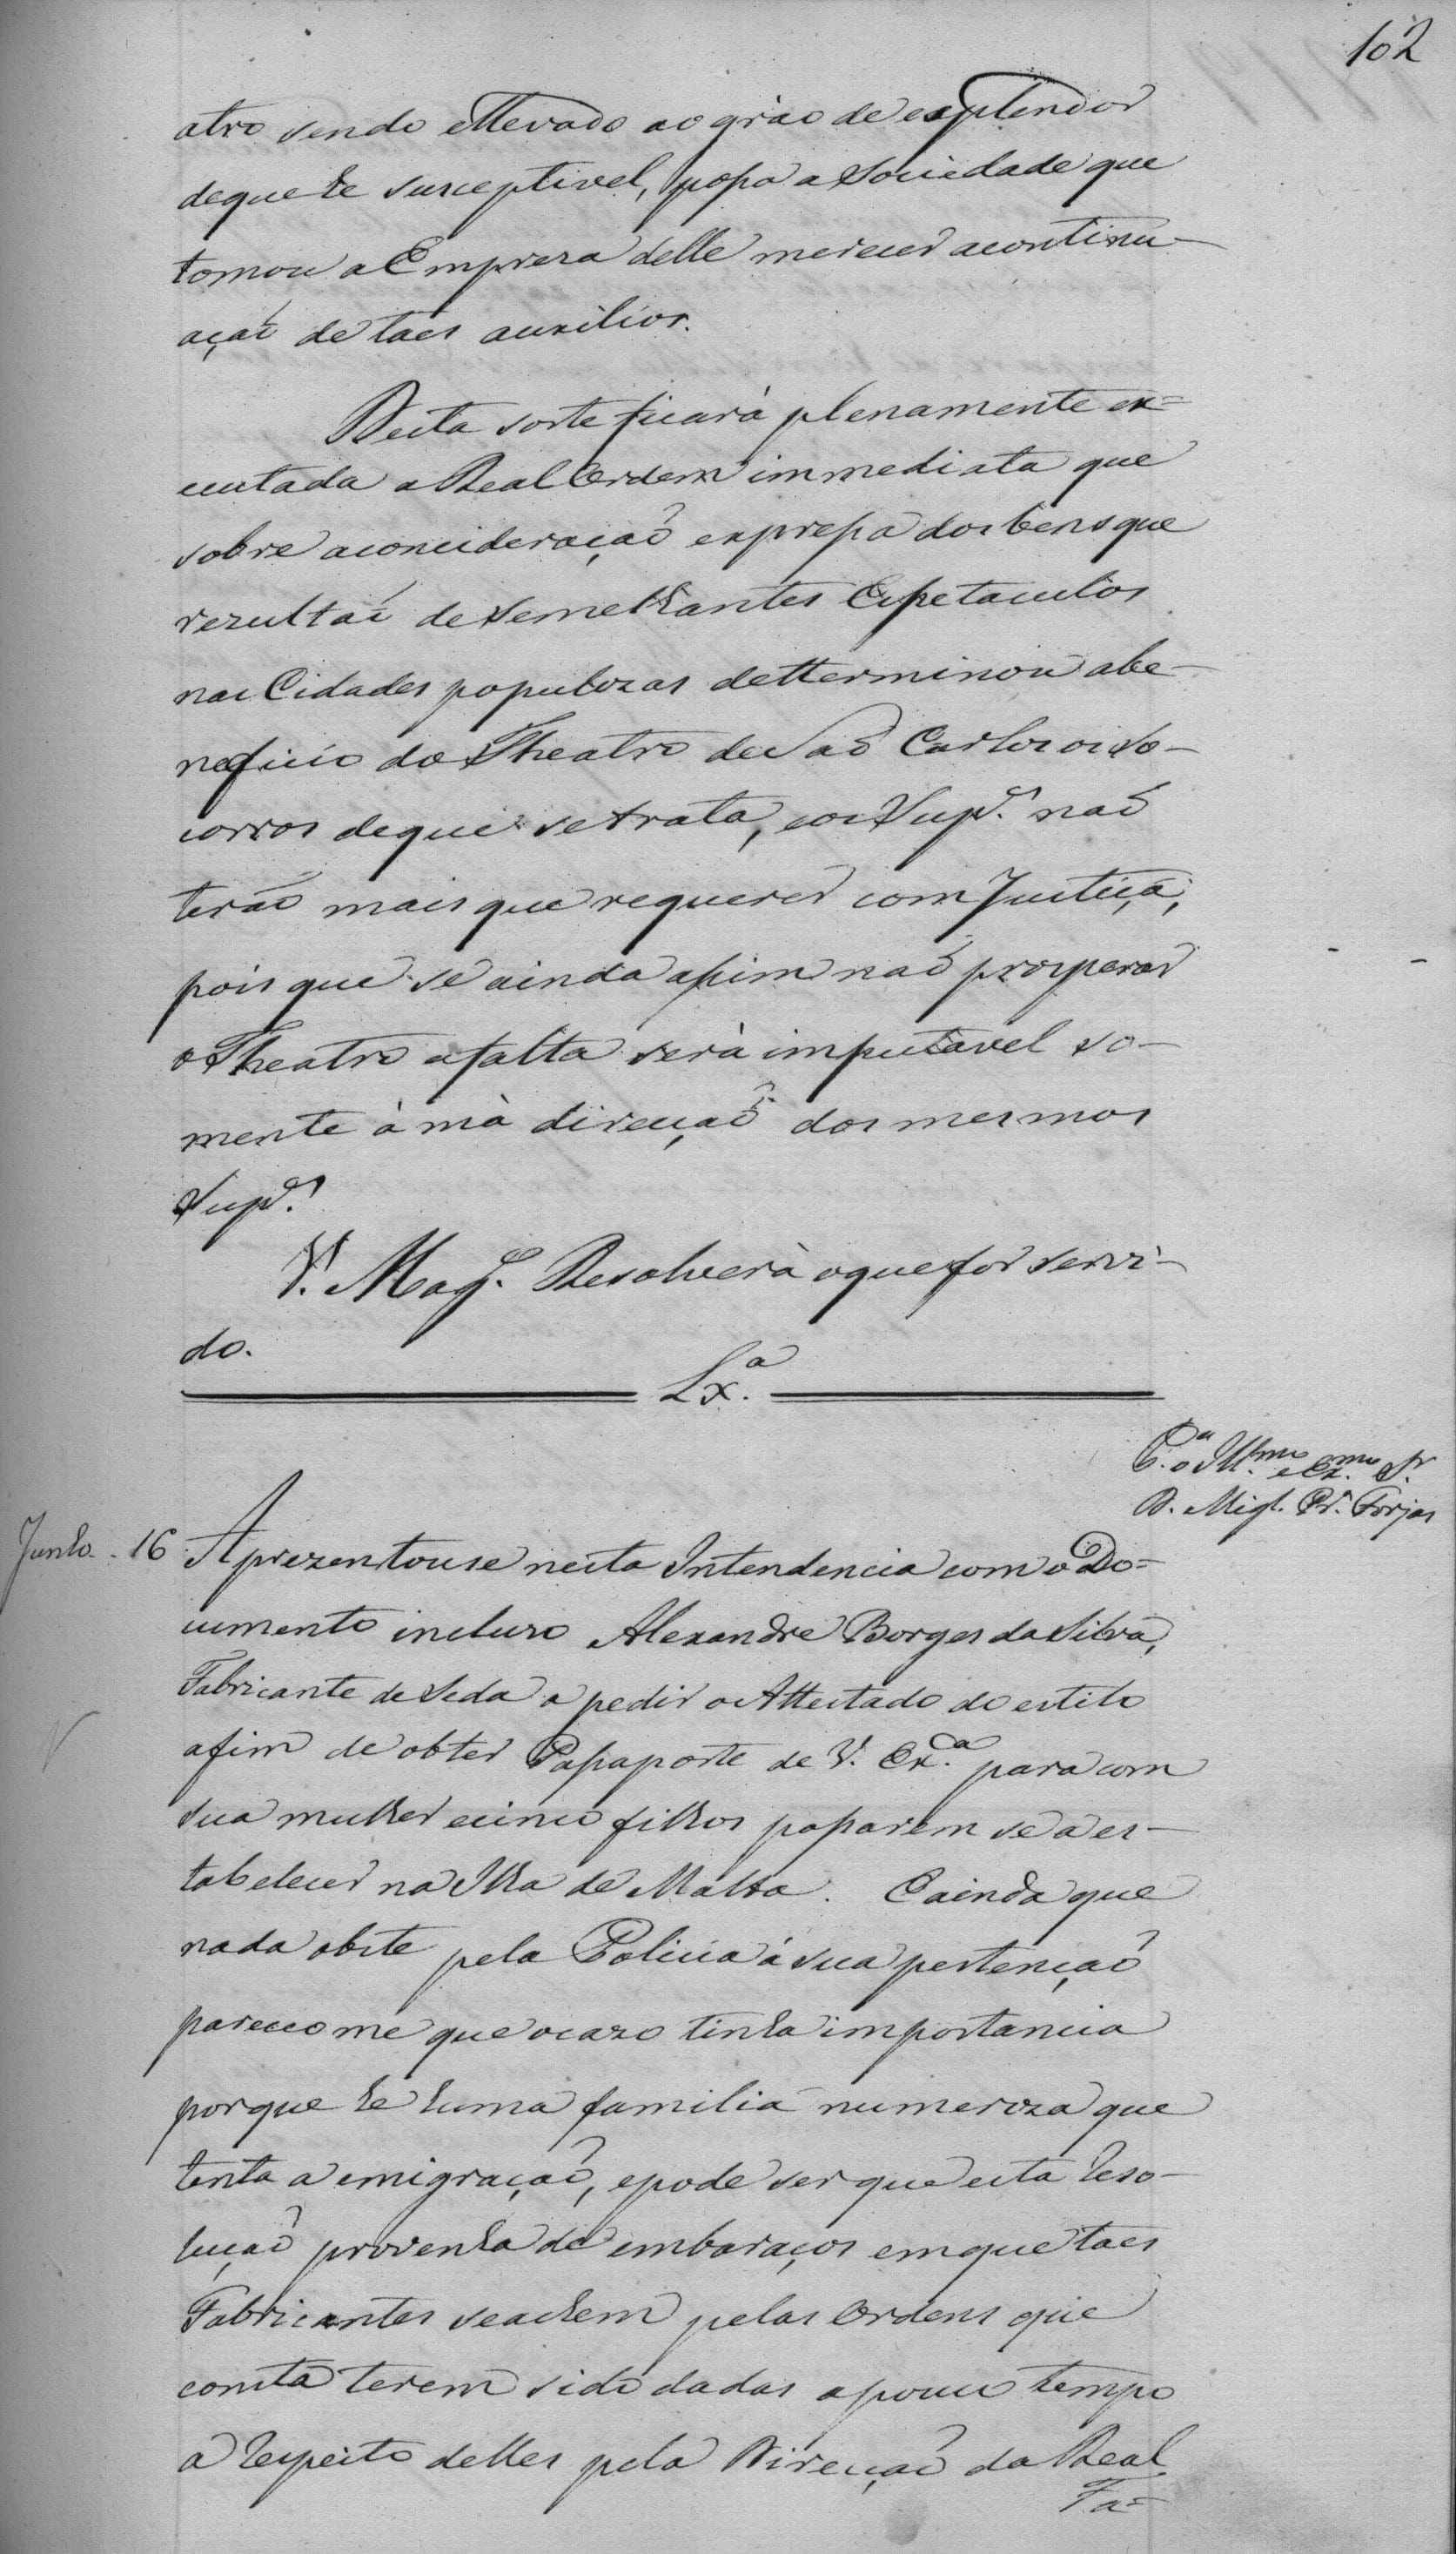 102
atro sendo ellevado ao gráo de esplendor
de que he susceptivel, possa a Sociedade que
tomou a Empreza delle merecer a continu-
açaõ de taes auxilios.
Desta sorte ficará plenamente ex=
ecutada a Real Ordem immediata que
sobre a concideraçaõ expressa dos bens que
rezultaõ de semelhantes Espetaculos
nas Cidades populozas detterminou a be-
neficio do Theatro de Saõ Carlos os so-
corros de que se trata, e os Sup.es naõ
teráõ mais que requerer com Justiça,
pois que se ainda assim naõ prosperar
o Theatro a falta será imputavel so-
mente á má direcçaõ dos mesmos
Sup.es
V. Mag.e Resolverá o que for servi-
do.
Lx.a
C.a o Ill.mo e Ex.mo Sr.
D. Migl. Pr. Forjas
Junho. 16 Aprezentouse nesta Intendencia com o Do=
cumento incluzo Alexandre Borges da Silva,
Fabricante de Seda a pedir o Attestado do estilo
afim de obter Passaporte de V. Ex.a para com
sua mulher e cinco filhos passarem se a es-
tabelecer na Ilha de Malta. E ainda que
nada obste pela Policia á sua pertençaõ
pareceo me que o cazo tinha importancia
porque he huma familia numeroza que
tenta a emigraçaõ, e pode ser que esta rezo-
luçaõ provenha de embaraços em que taes
Fabricantes se achem pelas Ordens que
consta terem sido dadas a pouco tempo
a respeito delles pela Direcçaõ da Real
Fa=